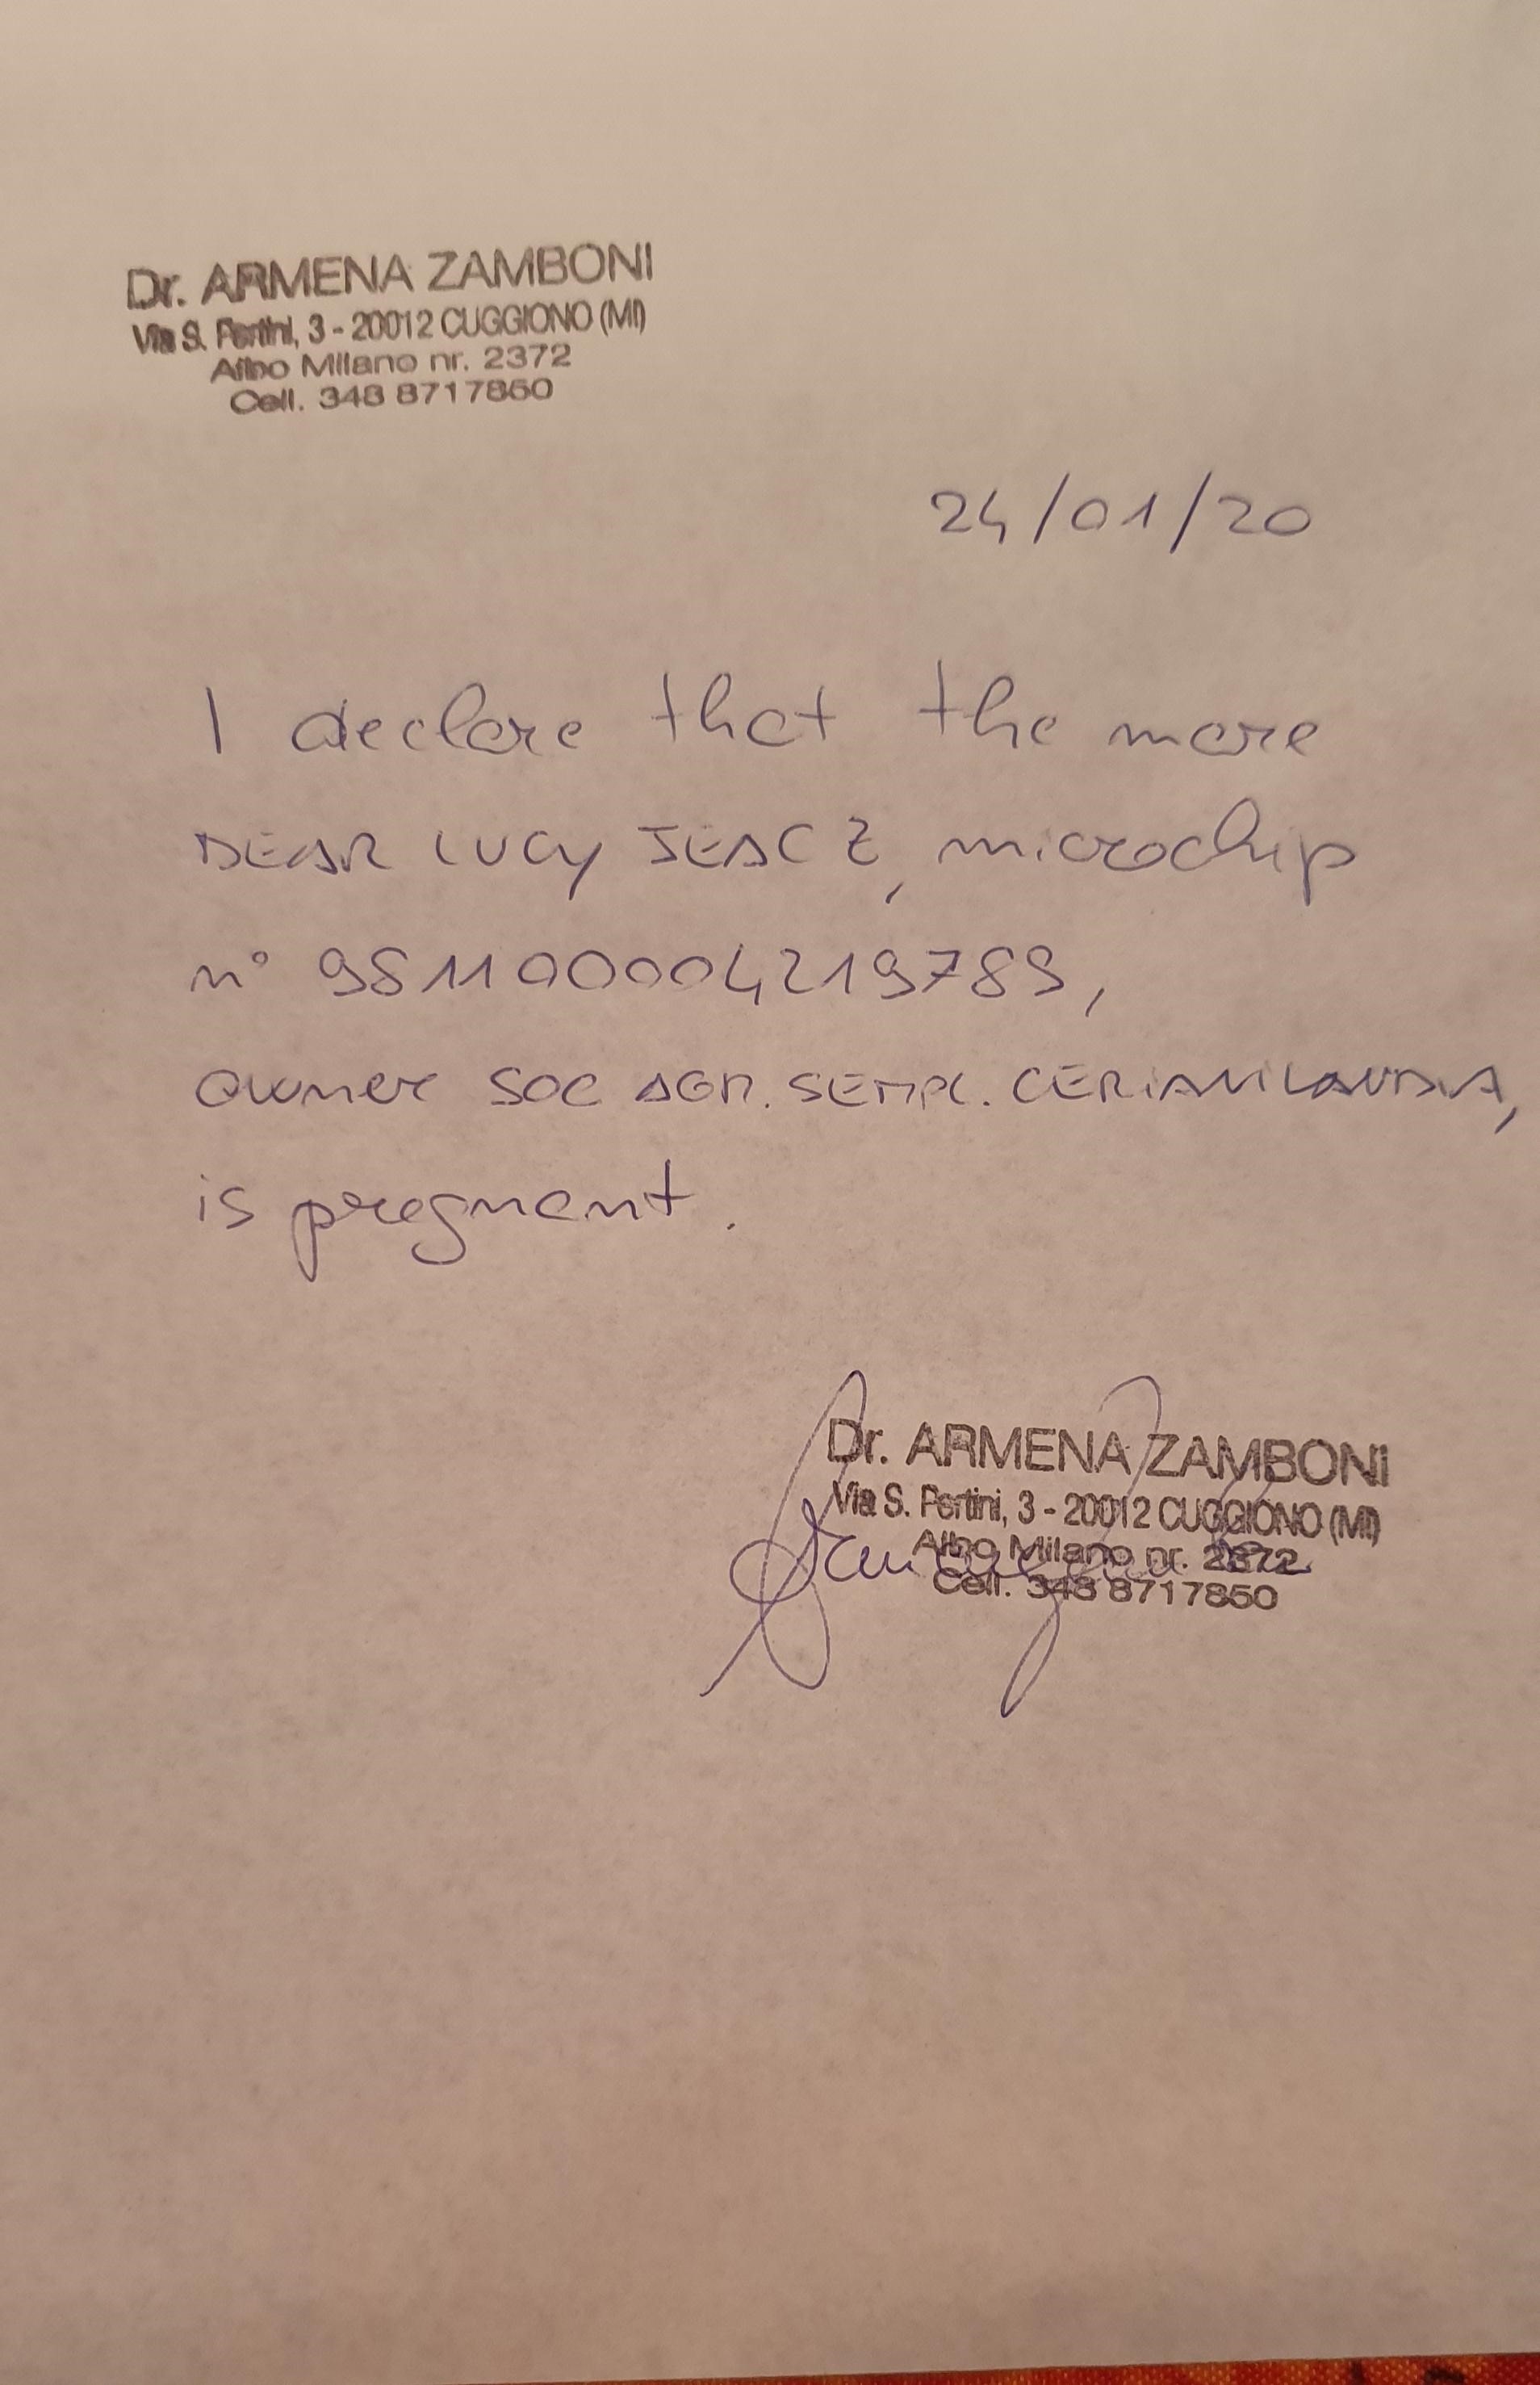 Dr. ARMENA ZAMBONI
Via S. Pertini, 3 - 20012 CUGGIONO (MI)
Albo Milano nr. 2372
Cell. 348 8717850
24/01/20
I declare that the mare
DEAR LUCY JEAC Z, microchip
n° 981100004219789,
owner SOC AGR. SEMPL. CERIANI LAURA,
is pregnant.
Dr. ARMENA ZAMBONI
Via S. Pertini, 3 - 20012 CUGGIONO (MI)
Albo Milano nr. 2372
Cell. 348 8717850